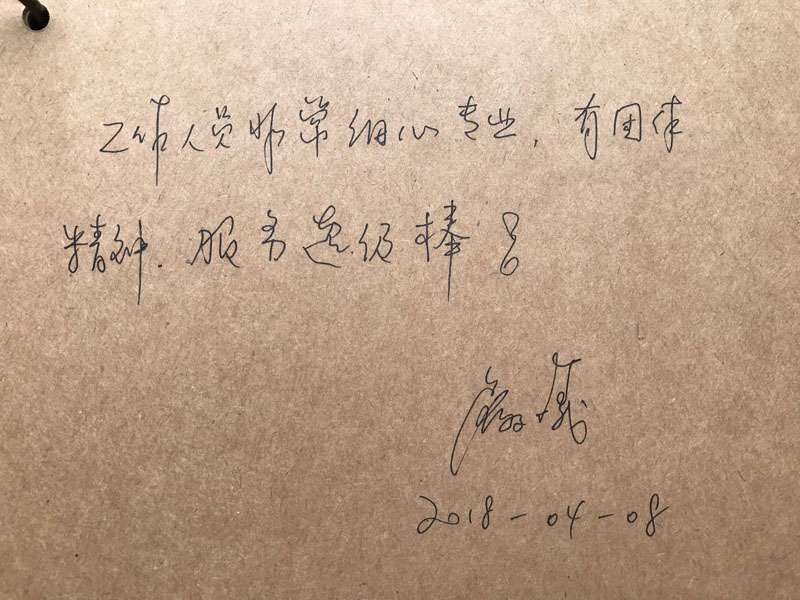 工作人员非常细心专业，有团体
精神．服务超级棒！
2018-04-08